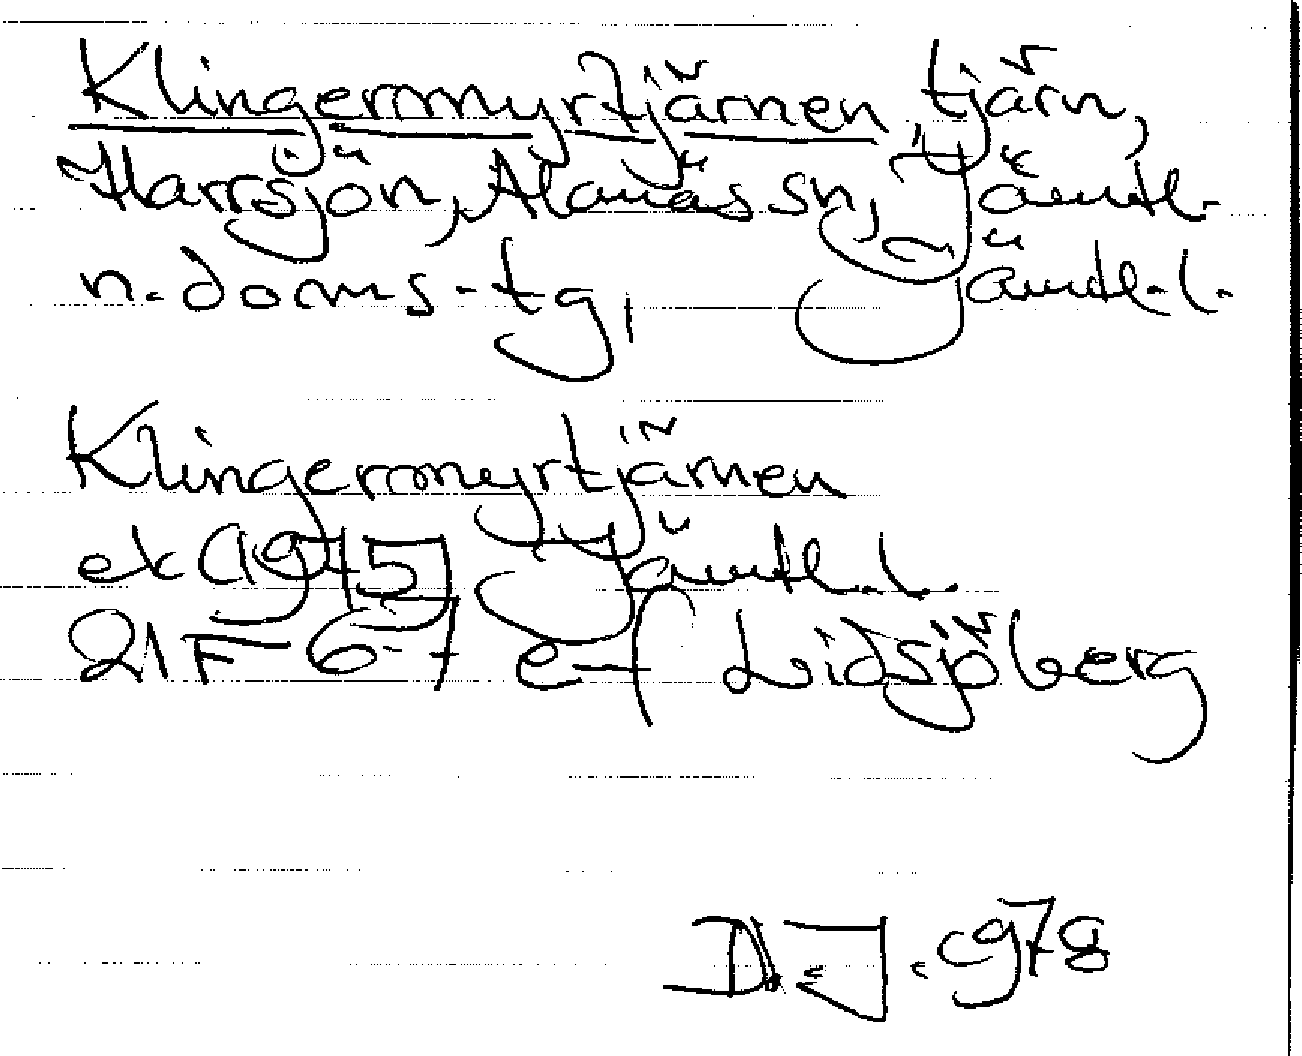 Klingermyrtjärnen, tjärn,
Harrsjön, Alanäs sn, Jämtl.
n. doms-tg, Jämtl. l.
Klingermyrtjärnen
ek (1975) Jämtl. l.
21 F 6-7 e-f Lidsjöberg
D. J. 1978